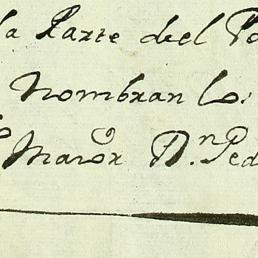 la Parte del Po
Nombran los
Maior Dn. Ped